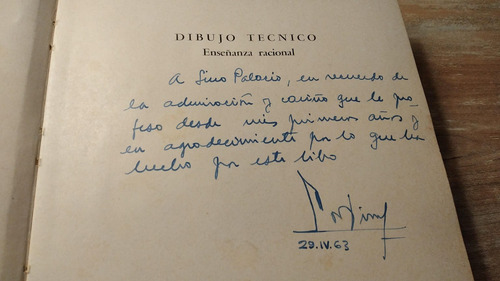 DIBUJO TECNICO
Enseñanza racional
A Lino Palacio, en recuerdo de
la admiración y cariño que le pro-
feso desde mis primeros años y
en agradecimiento por lo que ha
hecho por este libro
29.IV.63